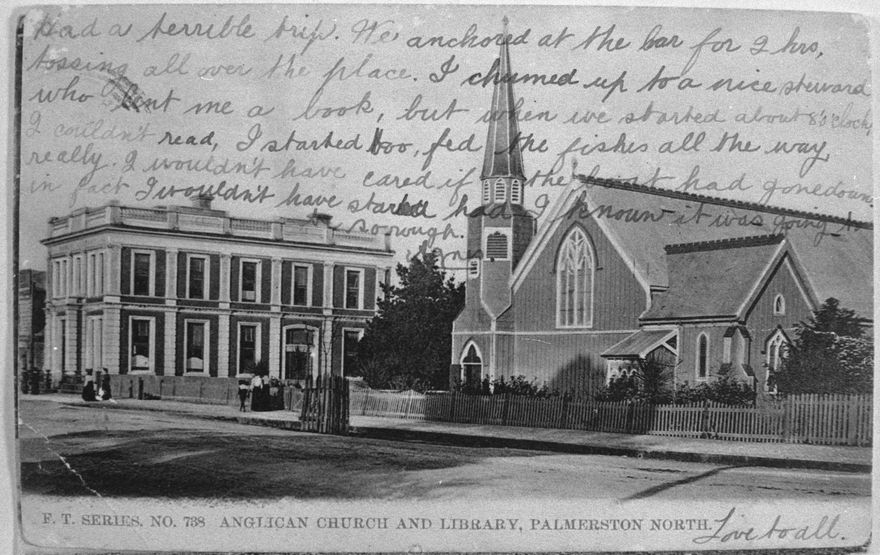 Had a terrible trip. We anchored at the bar for 2 hrs,
tossing all over the place. I chumed up to a nice steward
who lent me a book, but when we started about 8 o'clock,
I couldn't read, I started too, fed the fishes all the way
really. I wouldn't have cared if the boat had gone down,
in fact I wouldn't have started had I known it was going to
be so rough.
F. T. SERIES. NO. 738 ANGLICAN CHURCH AND LIBRARY, PALMERSTON NORTH.
Love to all.